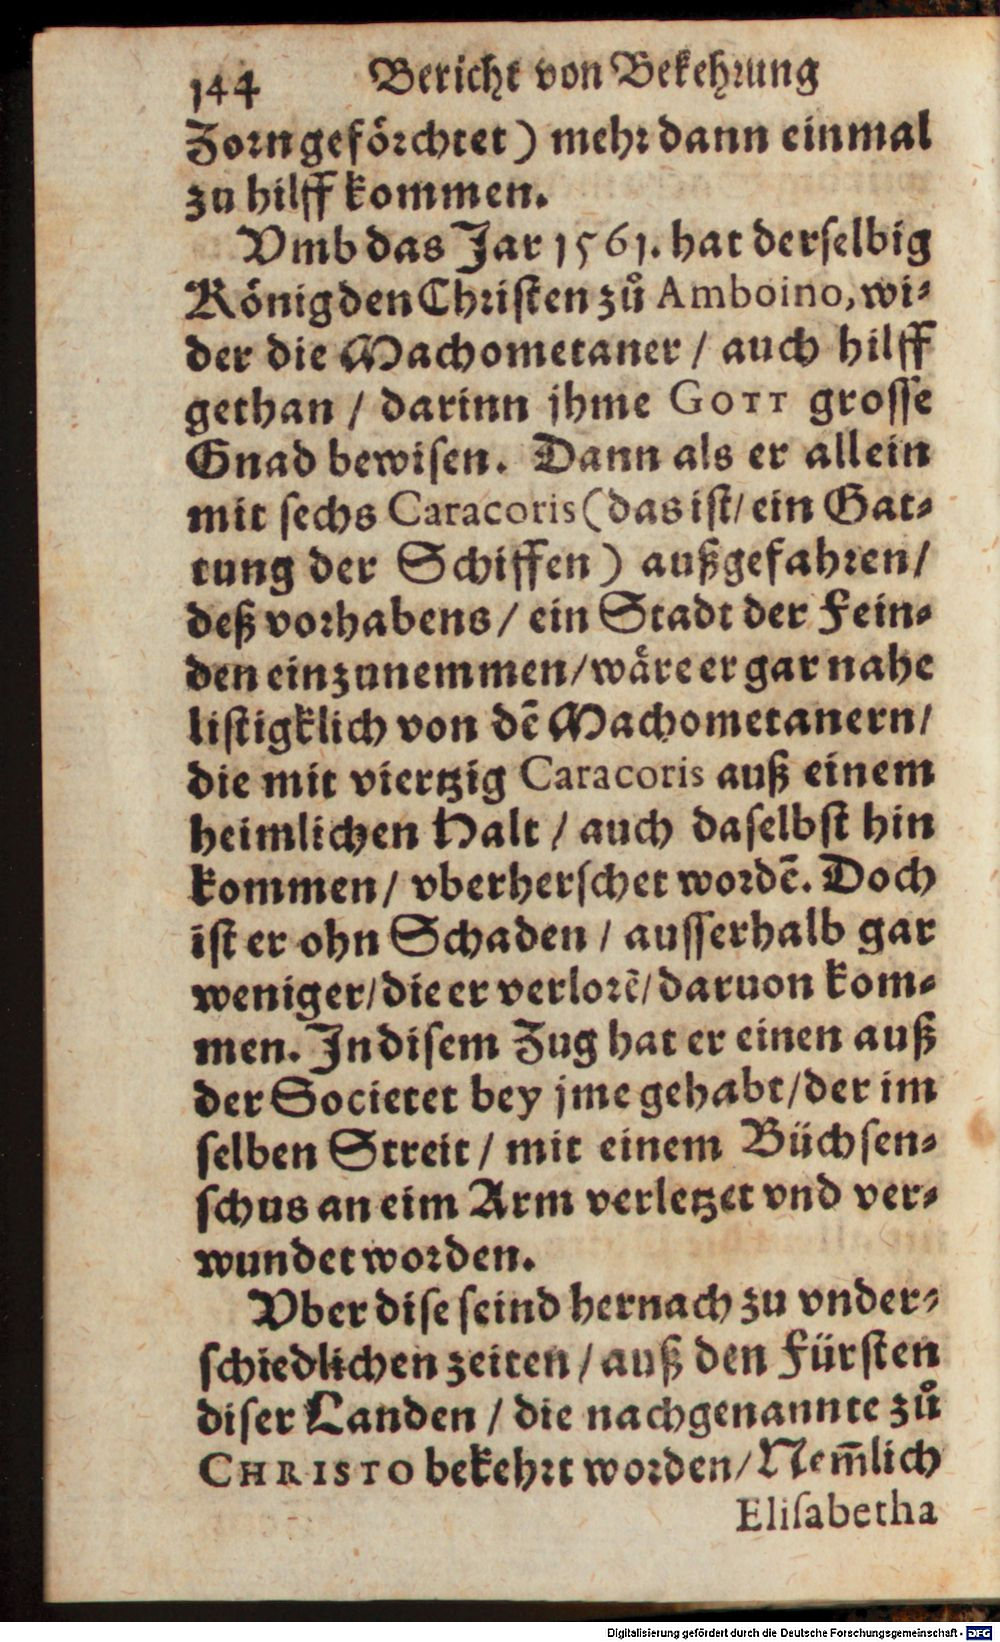 144 Bericht von Bekehrung
Zorn geförchtet) mehr dann einmal
zu hilff kommen.
Vmb das Jar 1561. hat derselbig
König den Christen zů Amboino, wi-
der die Machometaner / auch hilff
gethan / darinn jhme GOTT grosse
Gnad bewisen. Dann als er allein
mit sechs Caracoris (das ist/ ein Gat-
tung der Schiffen) außgefahren/
deß vorhabens / ein Stadt der Fein-
den einzunemmen/ wäre er gar nahe
listigklich von dẽ Machometanern/
die mit viertzig Caracoris auß einem
heimlichen Halt / auch daselbst hin
kommen/ vberherschet wordẽ. Doch
ist er ohn Schaden / ausserhalb gar
weniger/ die er verlorẽ/ daruon kom-
men. In disem Zug hat er einen auß
der Societet bey jme gehabt/ der im
selben Streit / mit einem Büchsen-
schus an eim Arm verletzet vnd ver-
wundet worden.
Vber dise seind hernach zu vnder-
schiedlichen zeiten / auß den Fürsten
diser Landen / die nachgenannte zů
CHRISTO bekehrt worden/ Nem̃lich
Elisabetha
Digitalisierung gefördert durch die Deutsche Forschungsgemeinschaft - DFG